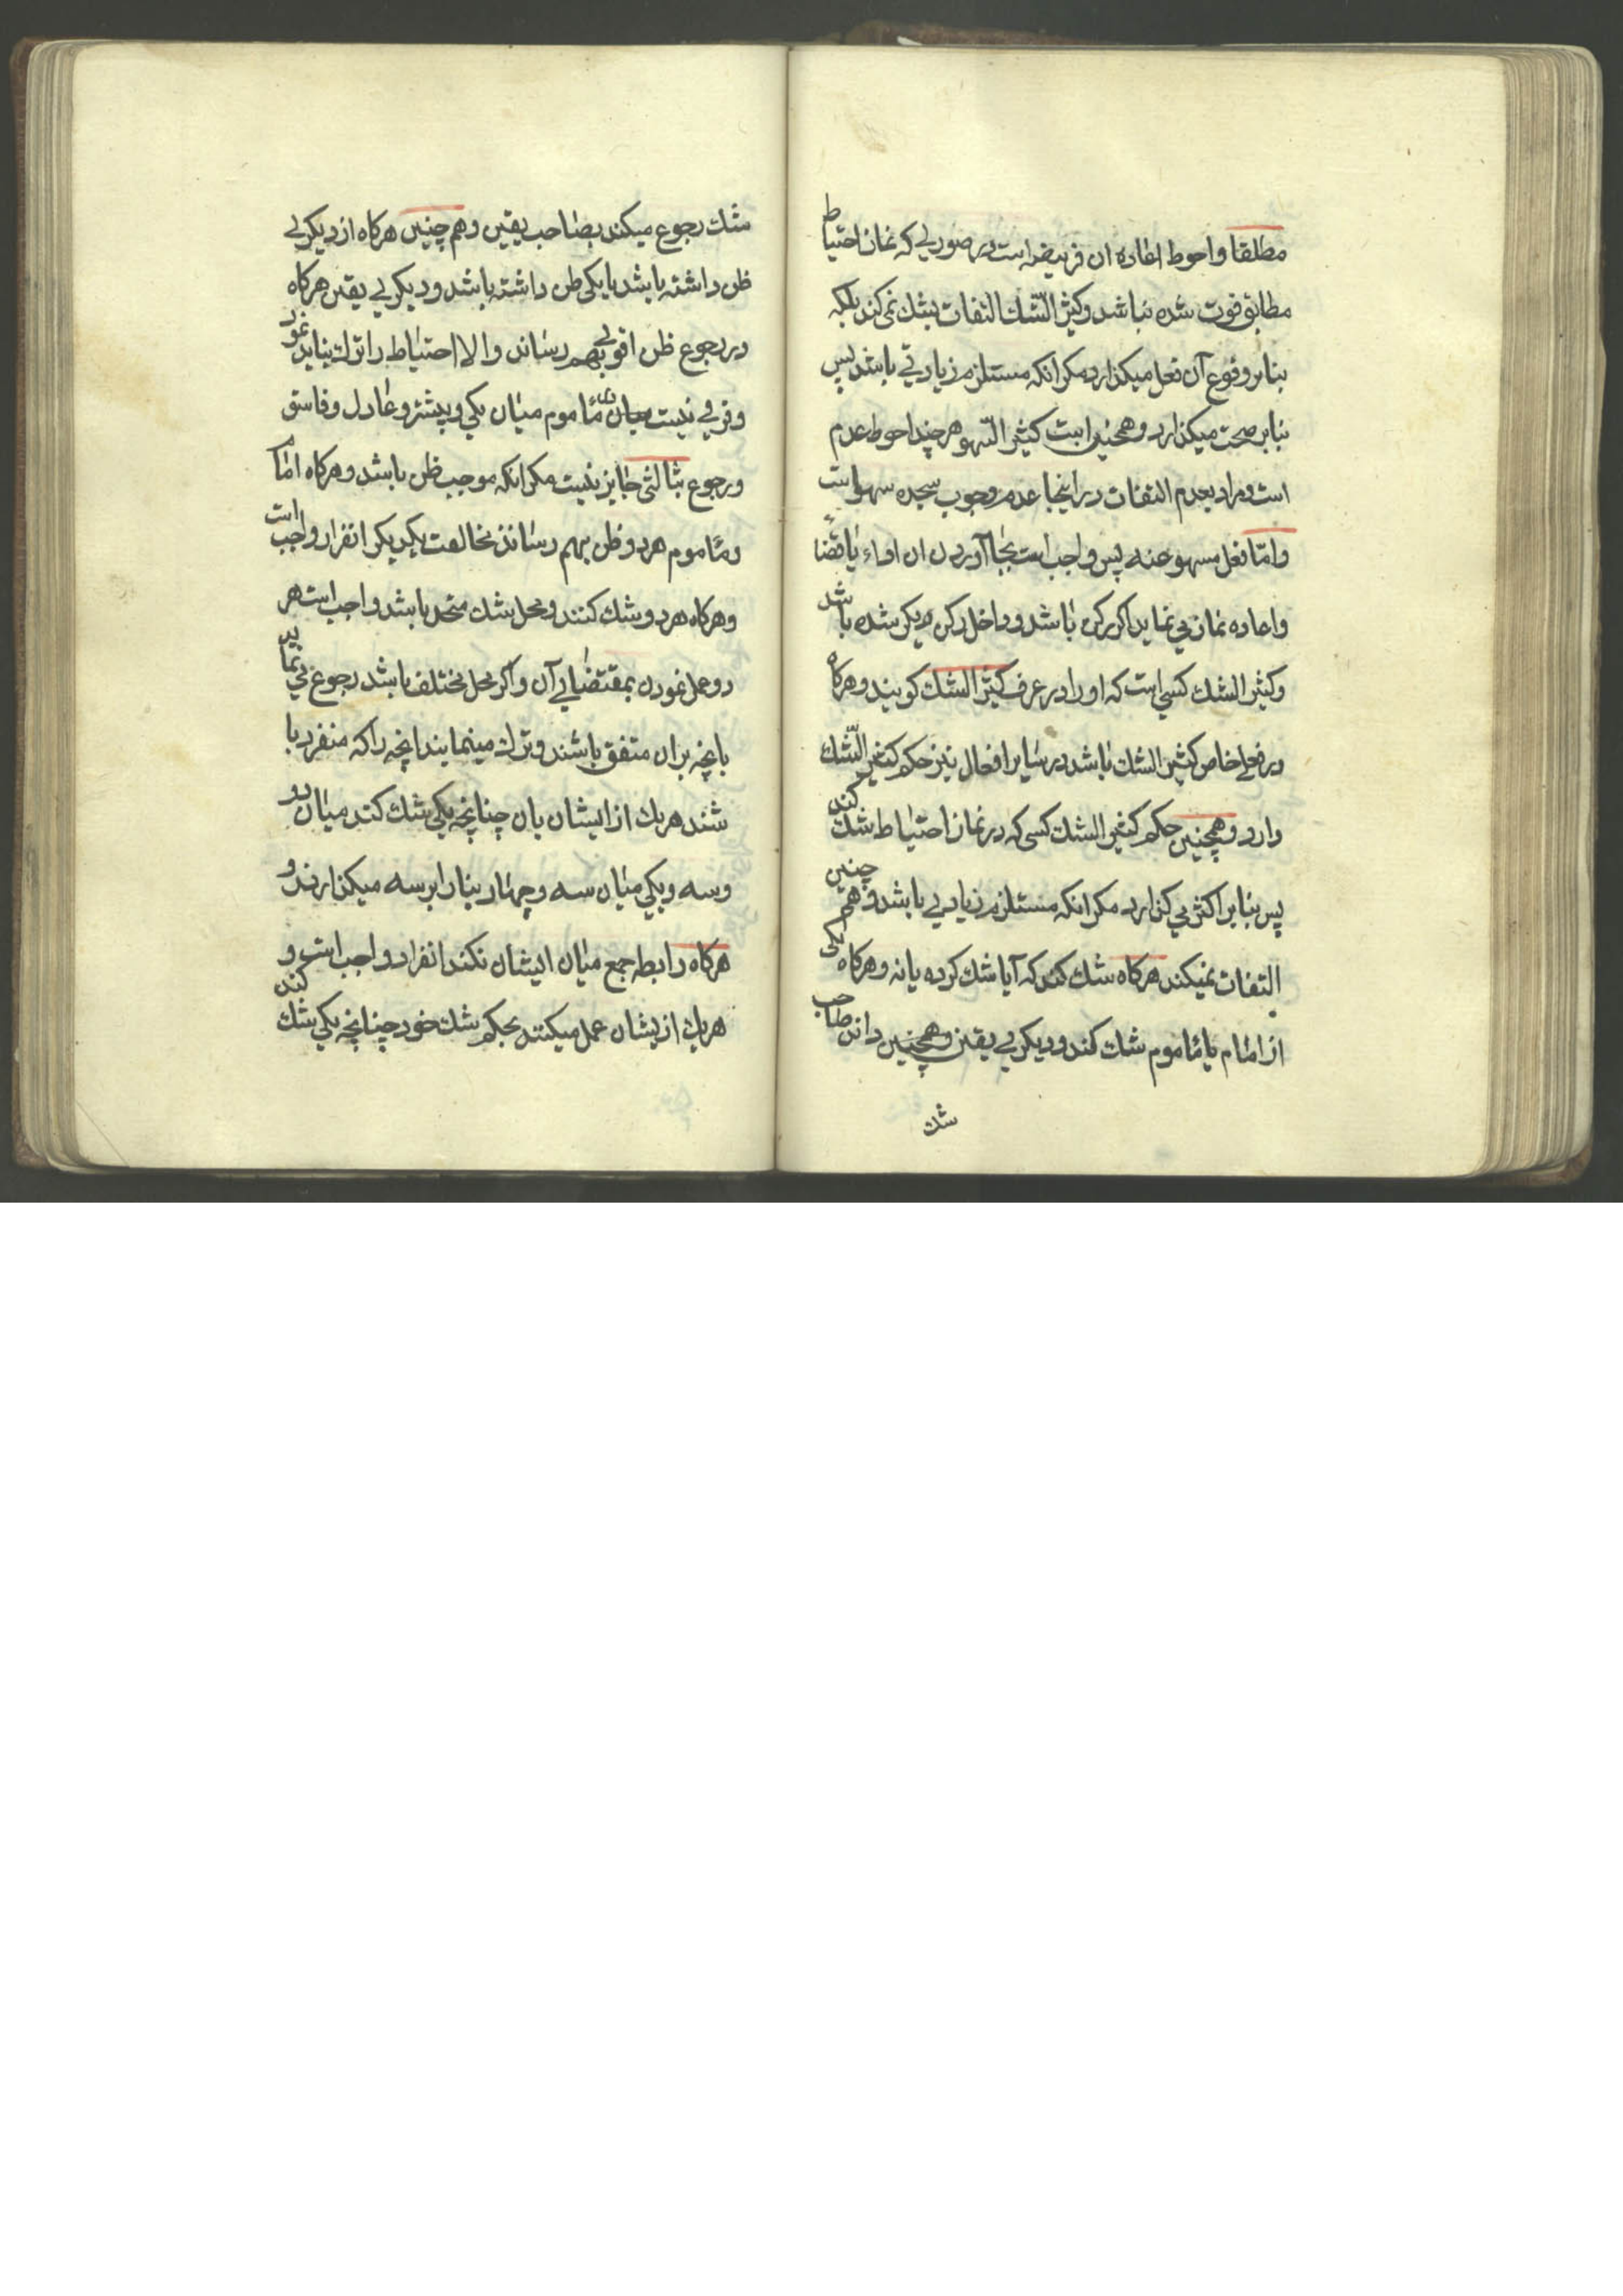 مطلقا و احوط اعاده ان فریضه است در صورتی که نماز احتیاط
مطابق فوت شده نباشد و کثیر الشک التفات بشک نمی کند بلکه
بنا بر وقوع آن فعل میکذارد مکر انکه مستلزم زیادتی باشد پس
بنا بر صحت میکذارد و همچنین است کثیر السهو هر چند احوط عدم
است و مراد بعدم التفات در اینجا عدم وجوب سجده سهو است
و امّا فعل مسهو عنه پس واجب است بجا آوردن ان اداء یا قضاءً
و اعاده نماز می نماید اکر رکن باشد و داخل رکن دیکر شده باشد
و کثیر الشک کسی است که او را در عرف کثیر الشک کویند و هرکاه
در فعلی خاص کثیر الشک باشد در سایر افعال نیز حکم کثیر الشک
دارد و همچنین حکم کثیر الشک کسی که در نماز احتیاط شک کند
پس بنا بر اکثر می کذارد مکر انکه مستلزم زیادتی باشد و هم چنین
التفات نمیکند هرکاه شک کند که آیا شک کرده یا نه و هرکاه یکی
از امام یا مأموم شک کند و دیکری یقین و همچنین داند صاحب
شک
شک رجوع میکند بصاحب یقین و هم چنین هرکاه از دیکری
ظن داشته باشد یا یکی ظن داشته باشد و دیکری یقین هرکاه
در رجوع ظن اقوی بهم رساند و الا احتیاط را ترک نباید نمود
و فرقی نیست میان مأموم میان یکی و بیشتر و عادل و فاسق
و رجوع بثالثی جایز نیست مکر انکه موجب ظن باشد و هرکاه امام
و مأموم هر دو ظن بهم رسانند مخالفت یکدیکر انفراد واجب است
و هرکاه هر دو شک کنند و محل شک متحد باشد واجب است هر
دو عمل نمودن بمقتضای آن و اکر محل مختلف باشد رجوع می نماید
بانچه بران متفق باشند و ترک مینمایند انچه را که منفرد با
شند هر یک از ایشان بان چنانچه یکی شک کند میان دو
و سه و یکی میان سه و چهار بنا را بر سه میکذارند و
هرکاه رابطه جمع میان ایشان نکند انفراد واجب است و
هر یک از یشان عمل میکنند بحکم شک خود چنانچه یکی شک کند